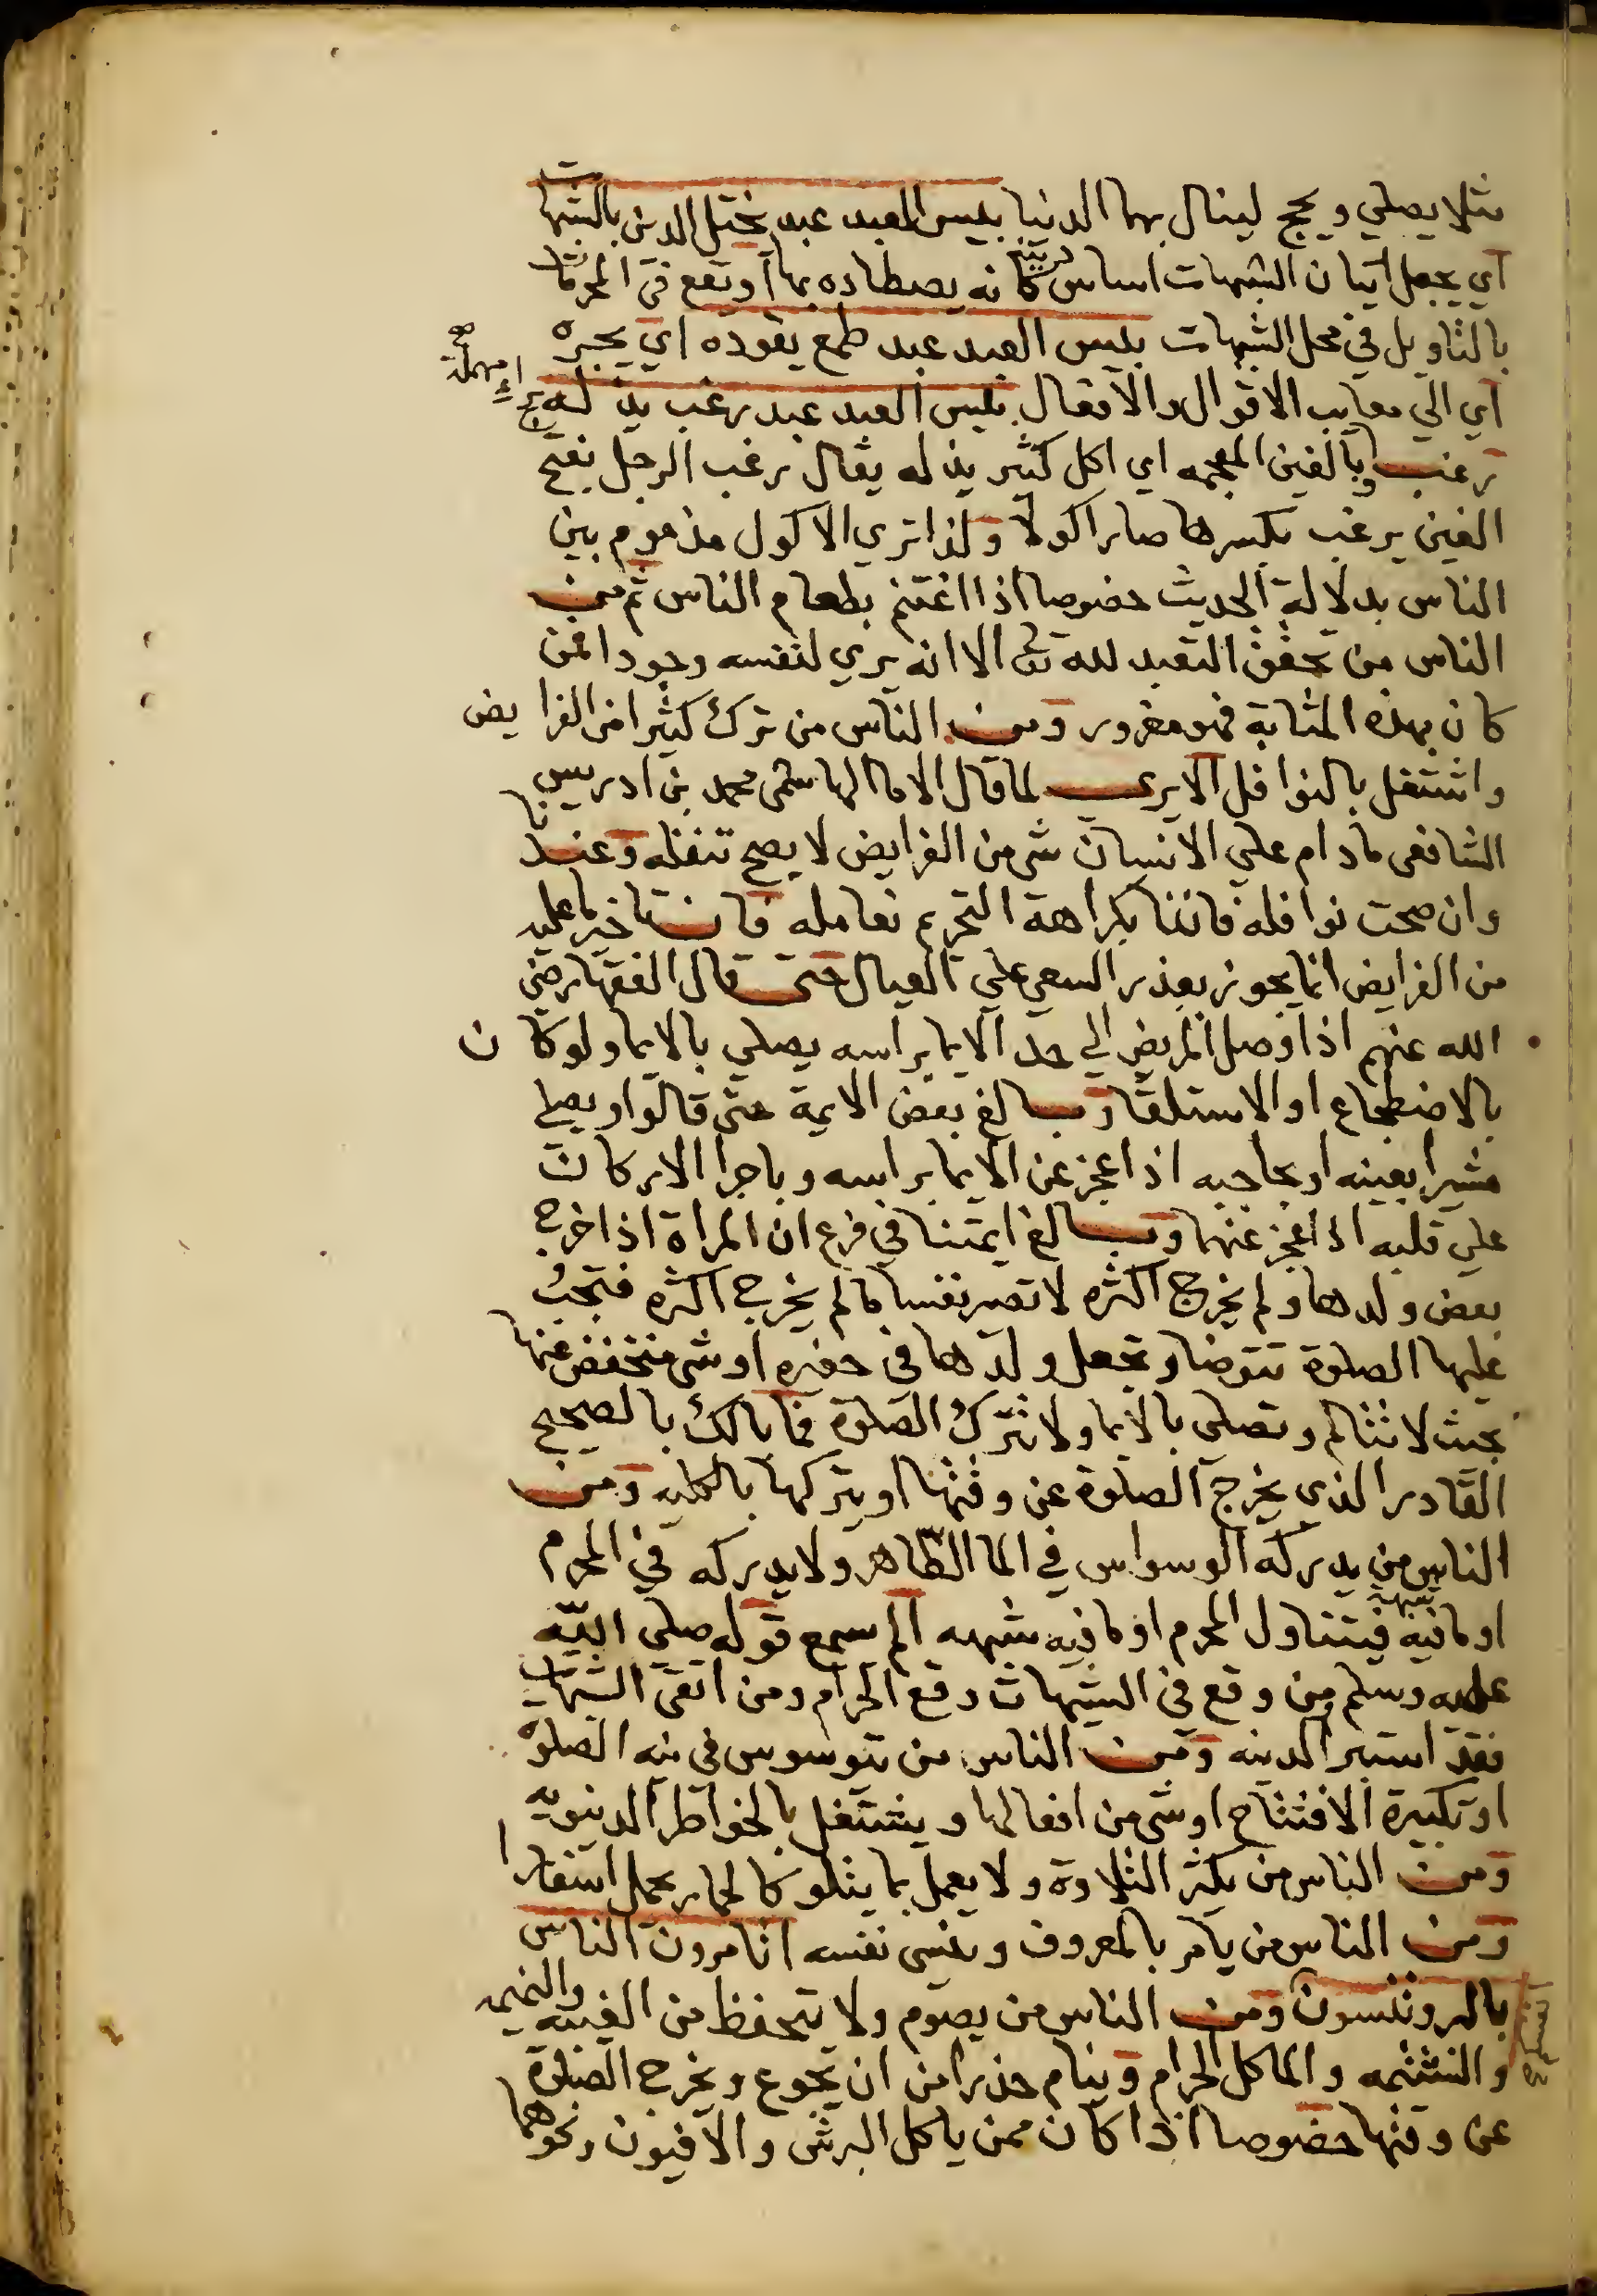 مثلا يصلي ويحج لينال بهما الدنيا بليس العبد عبد يختل الدين بالشبهات
اي يجعل اتيان الشبهات اساس دينه كانه يصطاده بها او تقع في المحرمات
بالتاويل في محل الشبهات بليس العبد عبد طمع يقوده اي يجره
اي الي معايب الاقوال والافعال بليس العبد عبد رغب يذله
رغب بالغين المعجمه اي اكل كثير يذله يقال رغب الرجل بفتح
الغين يرغب بكسرها صار اكولا ولذا تري الاكول مذموم بين
الناس بدلالة الحديث خصوصا اذا اغتنم بطعام الناس ثم من
الناس من يحقق التعبد لله تعالى الا انه يري لنفسه وجودا فمن
كان بهذه المثابة فهو مغرور ومن الناس من ترك كثيرا من الفرايض
واشتغل بالنوافل الا يرى لما قال الامام الهاشمى محمد بن ادريس
الشافعى مادام علي الانسان شى من الفرايض لا يصح تنفله وعندنا
وان صحت نوافله فاننا بكراهة التحريم نعامله فان تاخير ما عليه
من الفرايض انما يجوز بعذر السعي علي العيال حتى قال الفقها رضي
الله عنهم اذا وصل المريض الي حد الايما براسه يصلي بالايما ولو كان
بالاضطجاع او الاستلقا وبالغ بعض الايمة حتى قالوا ويصلي
مشيرا بعينه او بحاجبه اذا عجز عن الايما براسه وباجرا الاركان
علي قلبه اذا عجز عنهما وبالغ ايمتنا في فرع ان المراة اذا خرج
بعض ولدها ولم يخرج اكثره لا تصير نفسا ما لم يخرج اكثره فتجب
عليها الصلوة تتوضا وتجعل ولدها في حفيره او شى منخفض عنها
بحيث لا تتالم وتصلي بالايما ولا تترك الصلوة فما بالك بالصحيح
القادر الذي يخرج الصلوة عن وقتها او يتركها بالكليه ومن
الناس من يدركه الوسواس في الما الطاهر ولا يدركه في المحرم
او ما فيه شبهة فيتناول المحرم او ما فيه شبهه الم يسمع قوله صلي الله
عليه وسلم من وقع في الشبهات وقع الحرام ومن اتقى الشبهات
فقد استبرا لدينه ومن الناس من يتوسوس في نية الصلوة
او تكبيرة الافتتاح او شى من افعالها ويشتغل بالخواطر الدنيويه
ومن الناس من يكثر التلاوة ولا يعمل بما يتلو كالحمار يحمل اسفارا
ومن الناس من يامر بالمعروف وينسى نفسه اتامرون الناس
بالبر وتنسون ومن الناس من يصوم ولا يتحفظ من الغيبه والنميمه
والشتيمه والماكل الحرام وينام حذرا من ان يجوع ويخرج الصلوة
عن وقتها خصوصا اذا كان ممن ياكل البرش والافيون ونحوهما